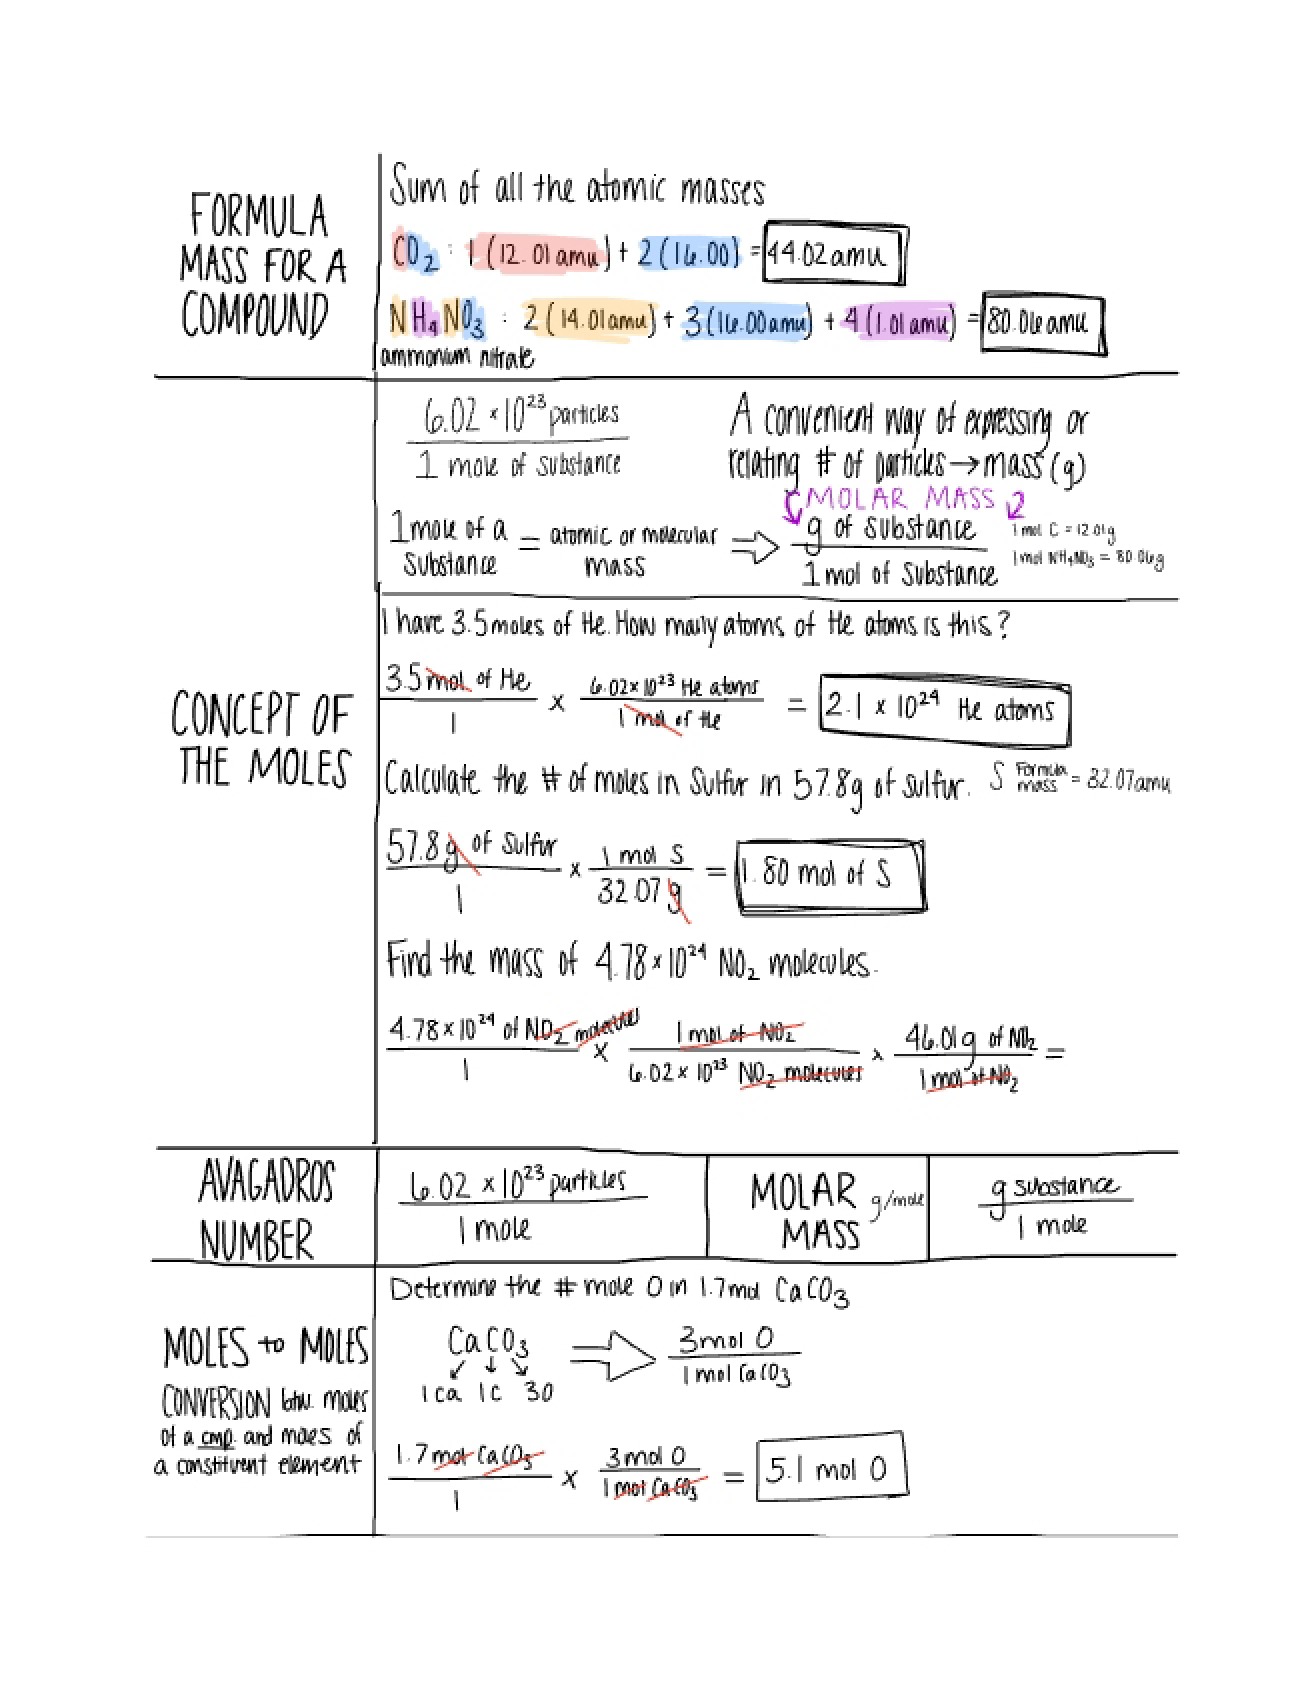 FORMULA
MASS FOR A
COMPOUND
Sum of all the atomic masses
CO₂ : 1 (12.01 amu) + 2 (16.00) = 44.02 amu
NH₄NO₃ : 2 (14.01 amu) + 3 (16.00 amu) + 4 (1.01 amu) = 80.06 amu
ammonium nitrate
CONCEPT OF
THE MOLES
6.02 × 10²³ particles
1 mole of substance
A convenient way of expressing or
relating # of particles → mass (g)
MOLAR MASS
1 mole of a
substance
= atomic or molecular
mass
⇒
g of substance
1 mol of substance
1 mol C = 12.01g
1 mol NH₄NO₃ = 80.06g
I have 3.5 moles of He. How many atoms of He atoms is this?
3.5 mol of He
1
×
6.02 × 10²³ He atoms
1 mol of He
= 2.1 × 10²⁴ He atoms
Calculate the # of moles in Sulfur in 57.8g of sulfur. S Formula mass = 32.07 amu
57.8 g of Sulfur
1
×
1 mol S
32.07 g
= 1.80 mol of S
Find the mass of 4.78 × 10²⁴ NO₂ molecules.
4.78 × 10²⁴ of NO₂ molecules
1
×
1 mol of NO₂
6.02 × 10²³ NO₂ molecules
×
46.01g of NO₂
1 mol of NO₂
=
AVAGADROS
NUMBER
6.02 × 10²³ particles
1 mole
MOLAR
MASS
g/mole
g substance
1 mole
MOLES to MOLES
CONVERSION btw. moles
of a cmp. and moles of
a constituent element
Determine the # mole O in 1.7 mol CaCO₃
CaCO₃
1 Ca 1 C 3 O
⇒
3 mol O
1 mol CaCO₃
1.7 mol CaCO₃
1
×
3 mol O
1 mol CaCO₃
= 5.1 mol O